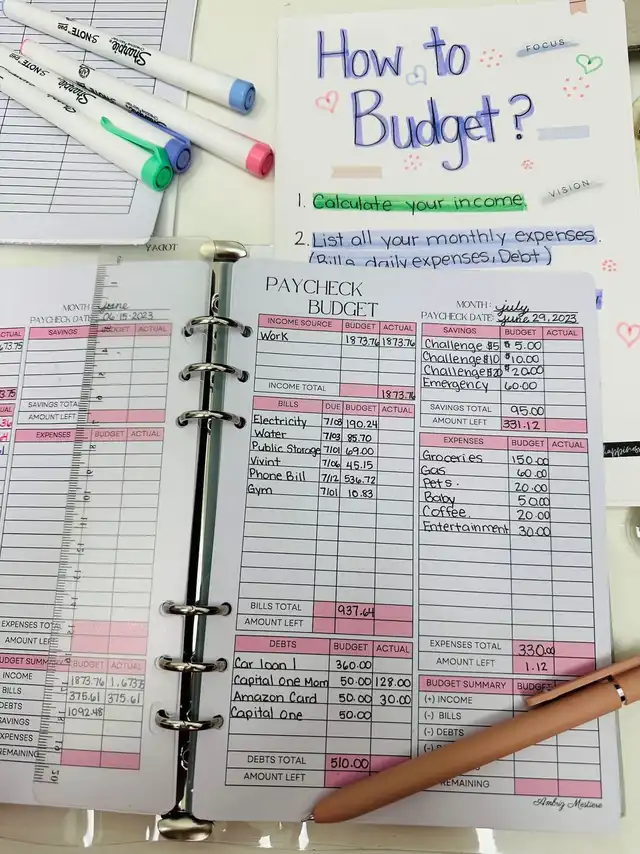 Sharpie S·NOTE
Sharpie S·NOTE
Sharpie S·NOTE
How to
Budget?
FOCUS
VISION
1. Calculate your income.
2. List all your monthly expenses.
(Bills, daily expenses, Debt)
happiness
TODAY
MONTH: June
PAYCHECK DATE: 06·15·2023
ACTUAL SAVINGS BUDGET ACTUAL
SAVINGS TOTAL
AMOUNT LEFT
ACTUAL EXPENSES BUDGET ACTUAL
EXPENSES TOTAL
AMOUNT LEFT
BUDGET SUMMARY BUDGET ACTUAL
INCOME 1873.76
BILLS 375.61 375.61
DEBTS 1092.48
SAVINGS
EXPENSES
REMAINING
PAYCHECK
BUDGET
MONTH: July
PAYCHECK DATE: June 29, 2023
INCOME SOURCE BUDGET ACTUAL
Work 1873.76 1873.76
INCOME TOTAL 1873.76
BILLS DUE BUDGET ACTUAL
Electricity 7/03 190.24
Water 7/03 85.70
Public Storage 7/01 69.00
Vivint 7/06 45.15
Phone Bill 7/12 536.72
Gym 7/01 10.83
BILLS TOTAL 937.64
AMOUNT LEFT
DEBTS BUDGET ACTUAL
Car loan 1 360.00
Capital One Mom 50.00 128.00
Amazon Card 50.00 30.00
Capital One 50.00
DEBTS TOTAL 510.00
AMOUNT LEFT
SAVINGS BUDGET ACTUAL
Challenge $5 $5.00
Challenge $10 $10.00
Challenge $20 $20.00
Emergency 60.00
SAVINGS TOTAL 95.00
AMOUNT LEFT 331.12
EXPENSES BUDGET ACTUAL
Groceries 150.00
Gas 60.00
Pets. 20.00
Baby 50.00
Coffee. 20.00
Entertainment 30.00
EXPENSES TOTAL 330.00
AMOUNT LEFT 1.12
BUDGET SUMMARY BUDGET
(+) INCOME
(-) BILLS
(-) DEBTS
REMAINING
Ambriz Mestiere